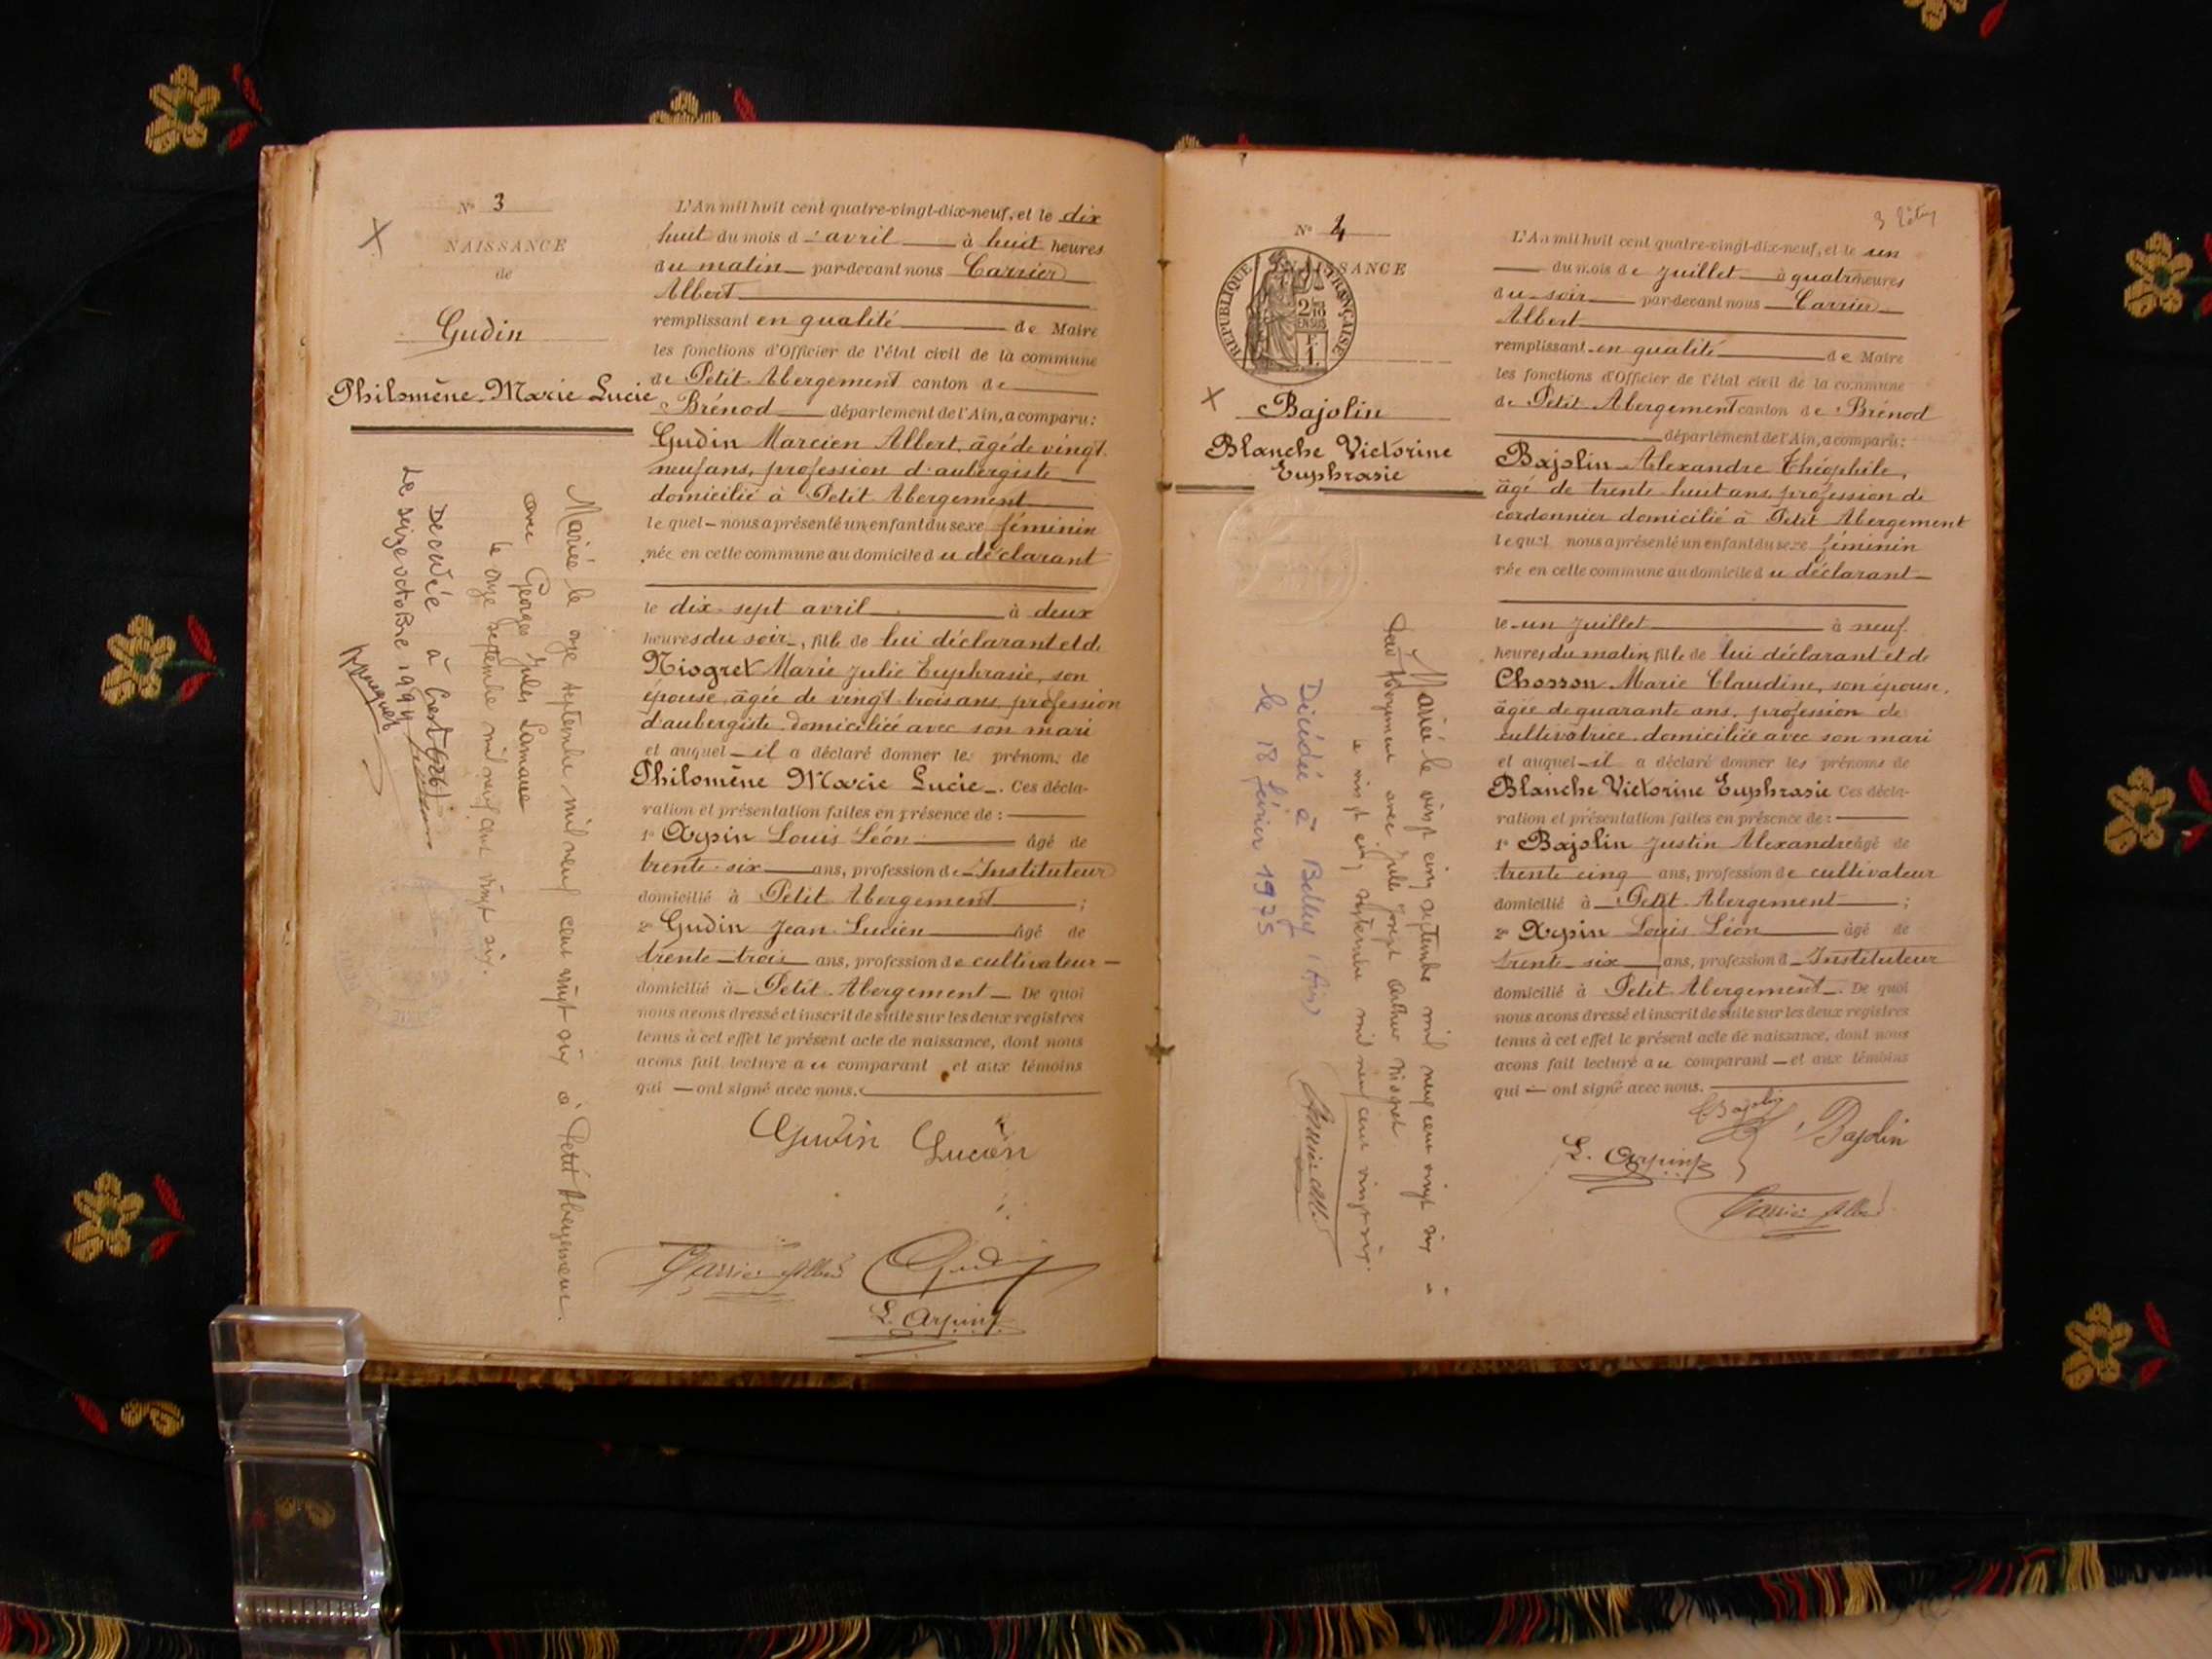 N° 3
NAISSANCE
de
Gudin
Philomène Marie Lucie
L'An mil huit cent quatre-vingt-dix-neuf, et le dix
huit du mois d'avril à huit heures
du matin par-devant nous Carrier
Albert
remplissant en qualité de Maire
les fonctions d'Officier de l'état civil de la commune
de Petit Abergement canton de
Brénod département de l'Ain, a comparu:
Gudin Marcien Albert, âgé de vingt
neuf ans, profession d'aubergiste
domicilié à Petit Abergement
le quel nous a présenté un enfant du sexe féminin
née en cette commune au domicile du déclarant
le dix sept avril à deux
heures du soir, fille de lui déclarant et de
Niogret Marie Julie Euphrasie, son
épouse âgée de vingt trois ans, profession
d'aubergiste domiciliée avec son mari
et auquel il a déclaré donner le prénom de
Philomène Marie Lucie. Ces décla-
ration et présentation faites en présence de :
1° Arpin Louis Léon âgé de
trente six ans, profession de Instituteur
domicilié à Petit Abergement ;
2° Gudin Jean Lucien âgé de
trente trois ans, profession de cultivateur
domicilié à Petit Abergement De quoi
nous avons dressé et inscrit de suite sur les deux registres
tenus à cet effet le présent acte de naissance, dont nous
avons fait lecture au comparant et aux témoins
qui ont signé avec nous.
Gudin Lucien
Carrier Albert
Gudin
L. Arpin
Mariée le onze septembre mil neuf cent vingt six à Petit Abergement
avec Georges Jules Lamane
le onze septembre mil neuf cent vingt six.
Décédée à Crest (26)
Le seize octobre 1994
3
N° 4
NAISSANCE
REPUBLIQUE FRANÇAISE
2/10 EN SUS
1
Bajolin
Blanche Victorine
Euphrasie
L'An mil huit cent quatre-vingt-dix-neuf, et le un
du mois de Juillet à quatre heures
du soir par-devant nous Carrier
Albert
remplissant en qualité de Maire
les fonctions d'Officier de l'état civil de la commune
de Petit Abergement canton de Brénod
département de l'Ain, a comparu:
Bajolin Alexandre Théophile,
âgé de trente huit ans, profession de
cordonnier domicilié à Petit Abergement
lequel nous a présenté un enfant du sexe féminin
née en cette commune au domicile du déclarant
le un Juillet à neuf
heures du matin, fille de lui déclarant et de
Chosson Marie Claudine, son épouse,
âgée de quarante ans, profession de
cultivatrice domiciliée avec son mari
et auquel il a déclaré donner les prénoms de
Blanche Victorine Euphrasie Ces décla-
ration et présentation faites en présence de :
1° Bajolin Justin Alexandre âgé de
trente cinq ans, profession de cultivateur
domicilié à Petit Abergement ;
2° Arpin Louis Léon âgé de
trente six ans, profession d Instituteur
domicilié à Petit Abergement. De quoi
nous avons dressé et inscrit de suite sur les deux registres
tenus à cet effet le présent acte de naissance, dont nous
avons fait lecture au comparant et aux témoins
qui ont signé avec nous.
Bajolin
Bajolin
L. Arpin
Carrier Albert
Mariée le vingt cinq septembre mil neuf cent vingt six à
Petit Abergement avec Jules Joseph Arthur Niogret
le vingt cinq septembre mil neuf cent vingt six.
Décédée à Belley (Ain)
le 18 février 1975